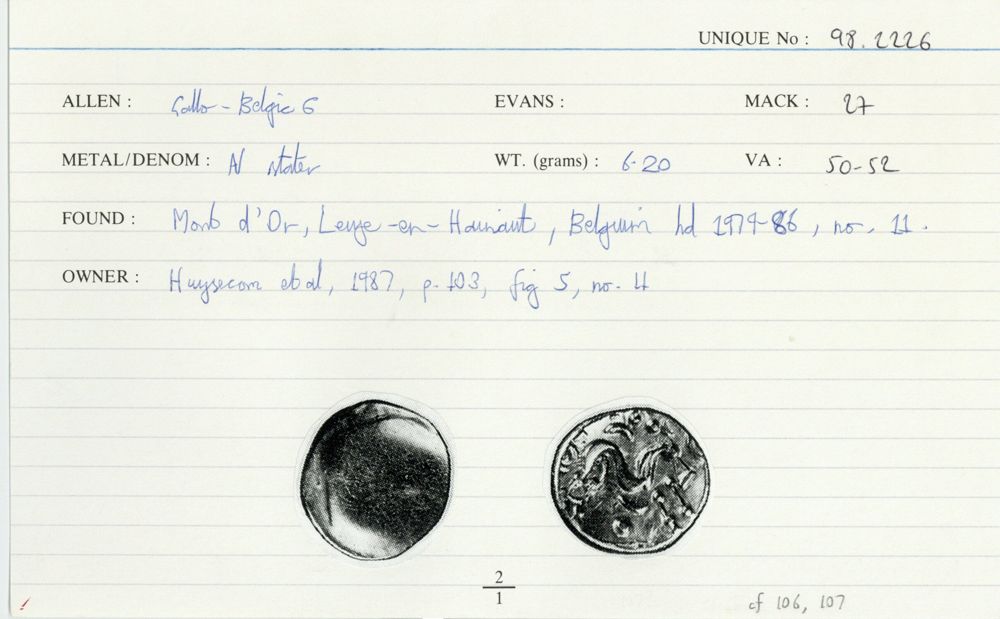 UNIQUE No : 98.2226
ALLEN : Gallo-Belgic G EVANS : MACK : 27
METAL/DENOM : N stater WT. (grams) : 6.20 VA : 50-52
FOUND : Mont d'Or, Leuze-en-Hainaut, Belguim hd 1979-86, no. 11.
OWNER : Huysecom et al, 1987, p. 103, fig 5, no. 4
2
1
cf 106, 107